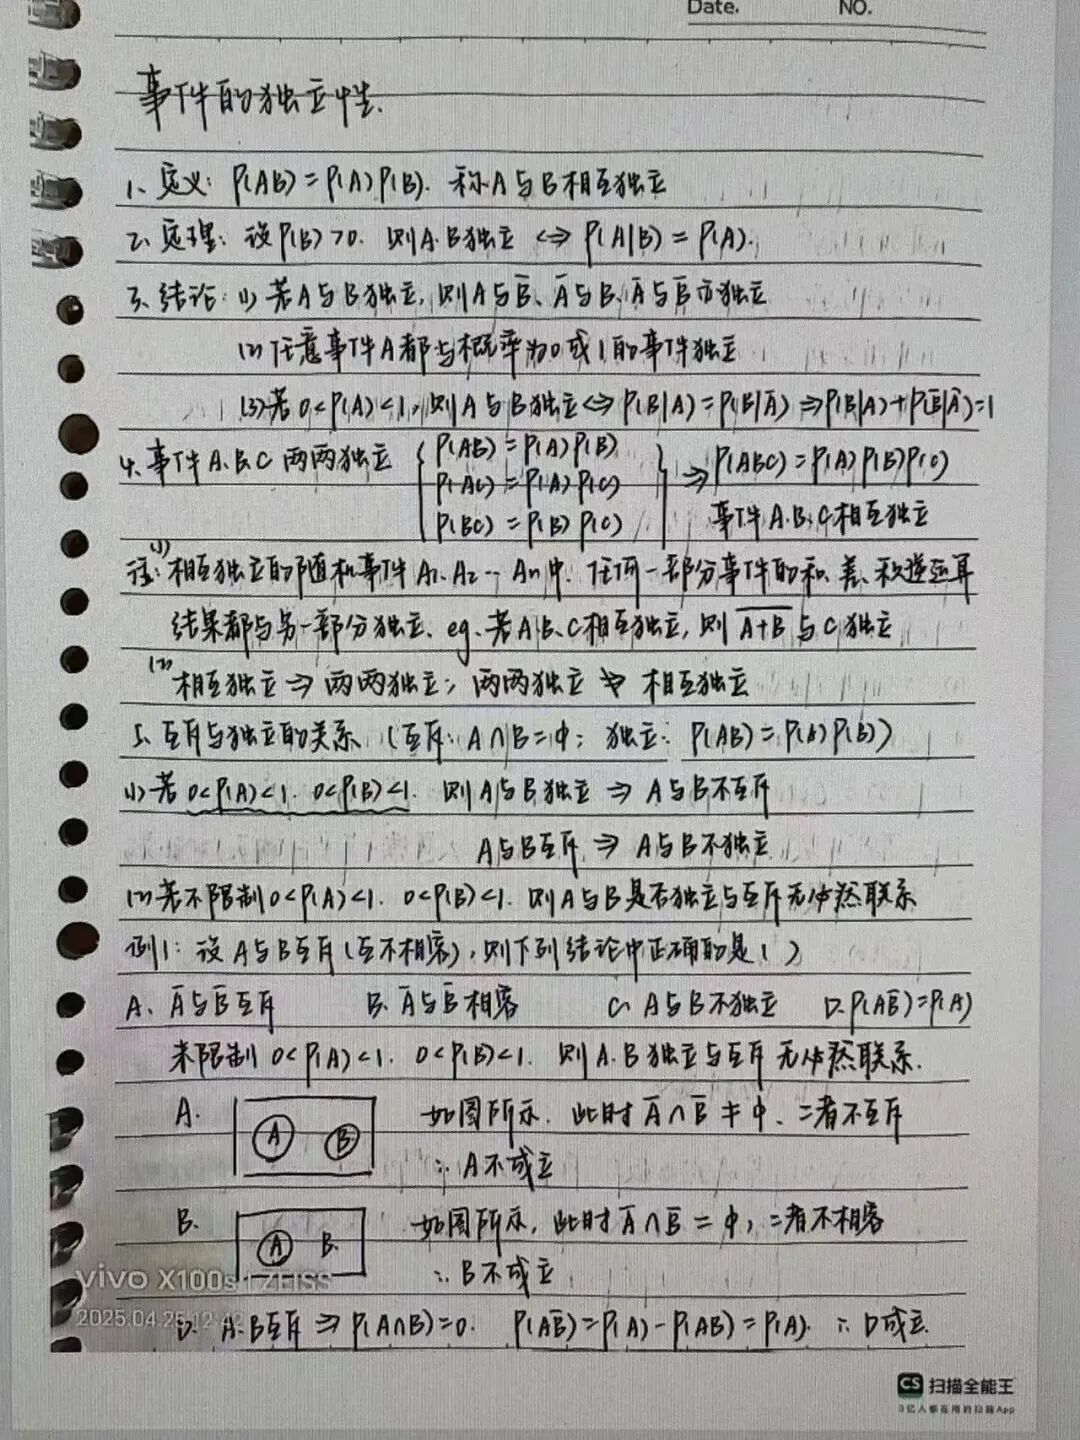 Date. NO.
事件的独立性.
1、定义: P(AB)=P(A)P(B). 称A与B相互独立
2、定理: 设P(B)>0. 则A.B独立 <=> P(A|B)=P(A).
3、结论: (1)若A与B独立, 则A与B̅、A̅与B、A̅与B̅亦独立
(2)任意事件A都与概率为0或1的事件独立
(3)若0<P(A)<1, 则A与B独立<=>P(B|A)=P(B|A̅)=>P(B|A)+P(B̅|A̅)=1
4、事件A.B.C两两独立 { P(AB)=P(A)P(B) P(AC)=P(A)P(C) P(BC)=P(B)P(C) } => P(ABC)=P(A)P(B)P(C)
事件A.B.C相互独立
注:(1)相互独立的随机事件A1、A2…An中. 任何一部分事件的和、差、积逆运算
结果都与另一部分独立、eg、若A、B、C相互独立, 则 A̅+̅B̅ 与C独立
(2)相互独立=>两两独立; 两两独立 ≠> 相互独立
5、互斥与独立的关系 (互斥: A∩B=φ; 独立: P(AB)=P(A)P(B))
(1)若0<P(A)<1. 0<P(B)<1. 则A与B独立 => A与B不互斥
A与B互斥 => A与B不独立
(2)若不限制0<P(A)<1. 0<P(B)<1. 则A与B是否独立与互斥无必然联系
例1: 设A与B互斥(互不相容), 则下列结论中正确的是( )
A、A̅与B̅互斥 B、A̅与B̅相容 C、A与B不独立 D.P(AB̅)=P(A)
未限制0<P(A)<1. 0<P(B)<1. 则A.B独立与互斥无必然联系.
A. A B 如图所示. 此时A̅∩B̅≠φ、二者不互斥
∴A不成立
B. A B. 如图所示, 此时A̅∩B̅=φ, 二者不相容
∴B不成立
vivo X100s | ZEISS
2025.04.25 12:42
D. A.B互斥=>P(A∩B)=0. P(AB̅)=P(A)-P(AB)=P(A). ∴D成立.
CS 扫描全能王
3亿人都在用的扫描App